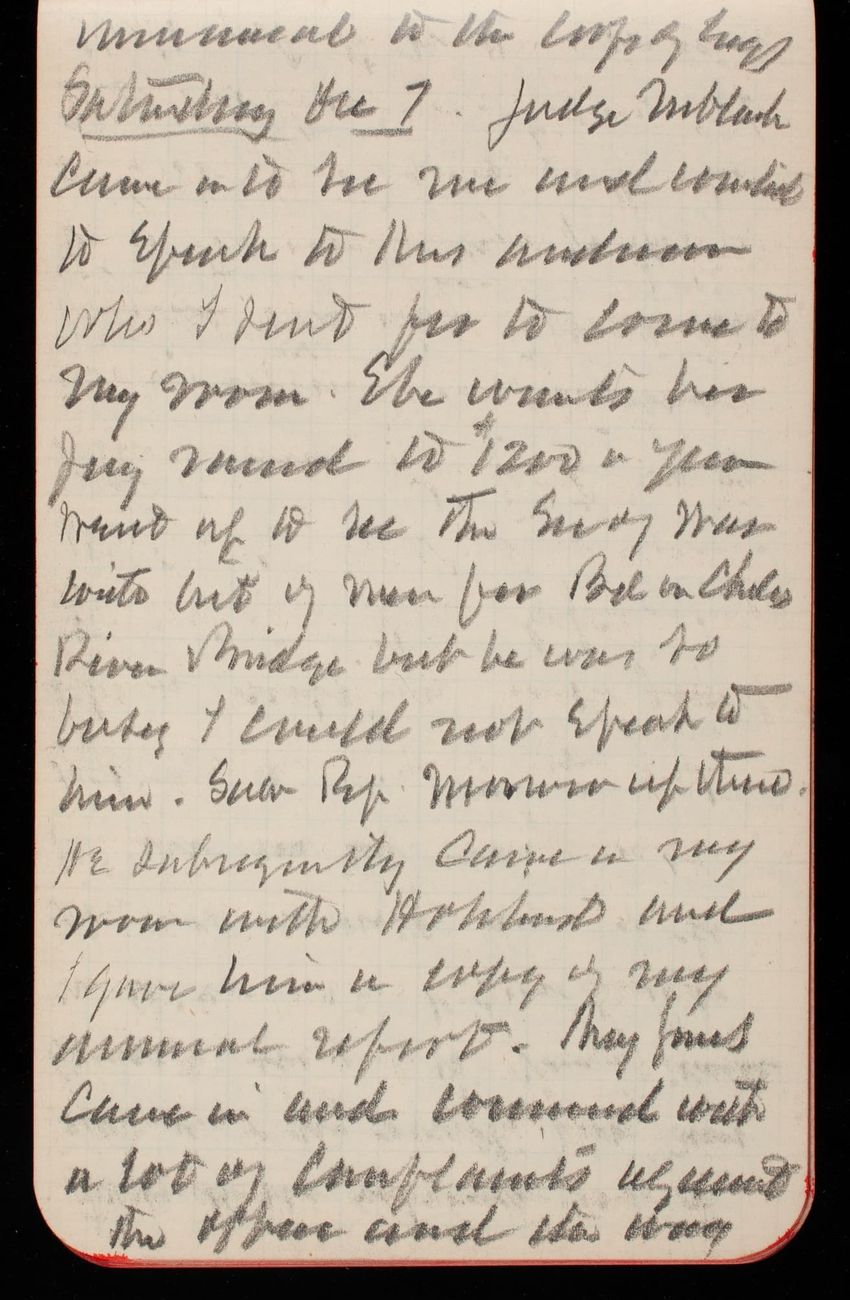 memorial to the Corps of Engs
Saturday Dec 7. Judge McBlack
Came in to see me and wanted
to speak to Mrs Anderson
who I sent for to come to
my room. She wants her
pay raised to $1200 a year
went up to see the Secy War
with list of men for Bd on Charles
River Bridge but he was so
busy I could not speak to
him. Saw Rep. Morrow up there.
He subsequently came in my
room with and
I gave him a copy of my
annual report. Maj Jones
Came in and commenced with
a lot of complaints against
the office and the way